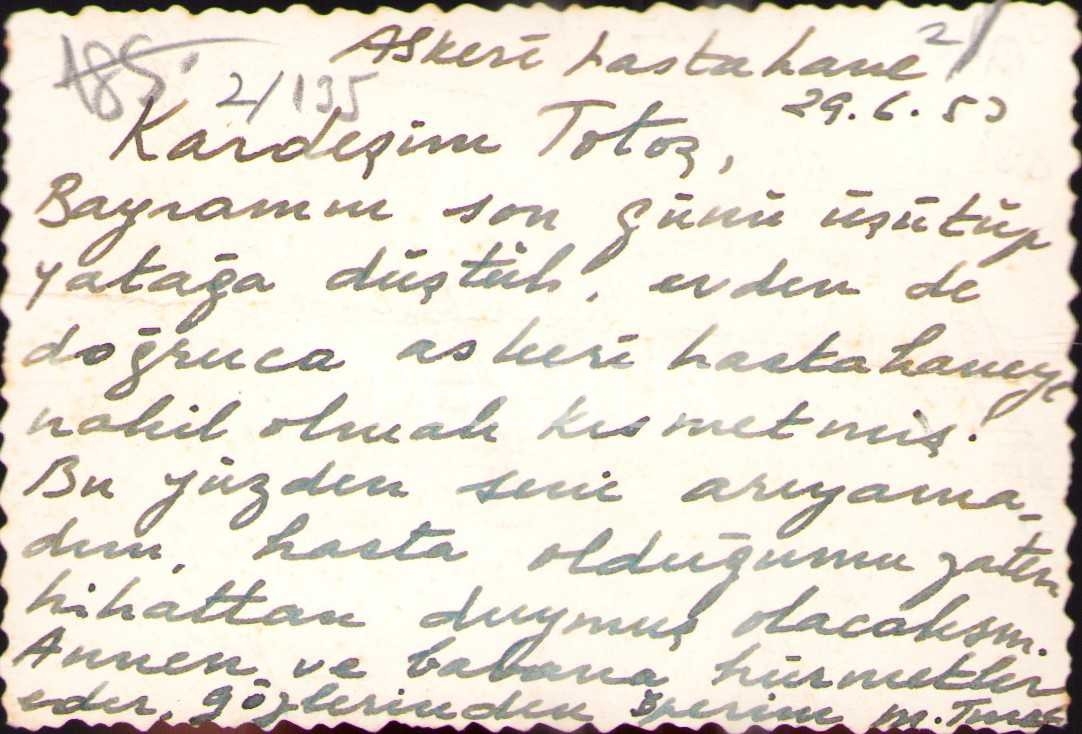 185. Askerî hastahane 2/
2/135 29.6.53
Kardeşim Totoş,
Bayramın son günü üşütüp
yatağa düştük, evden de
doğruca askerî hastahaneye
nakil olmak kısmetmiş.
Bu yüzden seni arıyama-
dım, hasta olduğumu zaten
hihattan duymuş olacaksın.
Annen ve babana hürmetler
eder, gözlerinden öperim M.